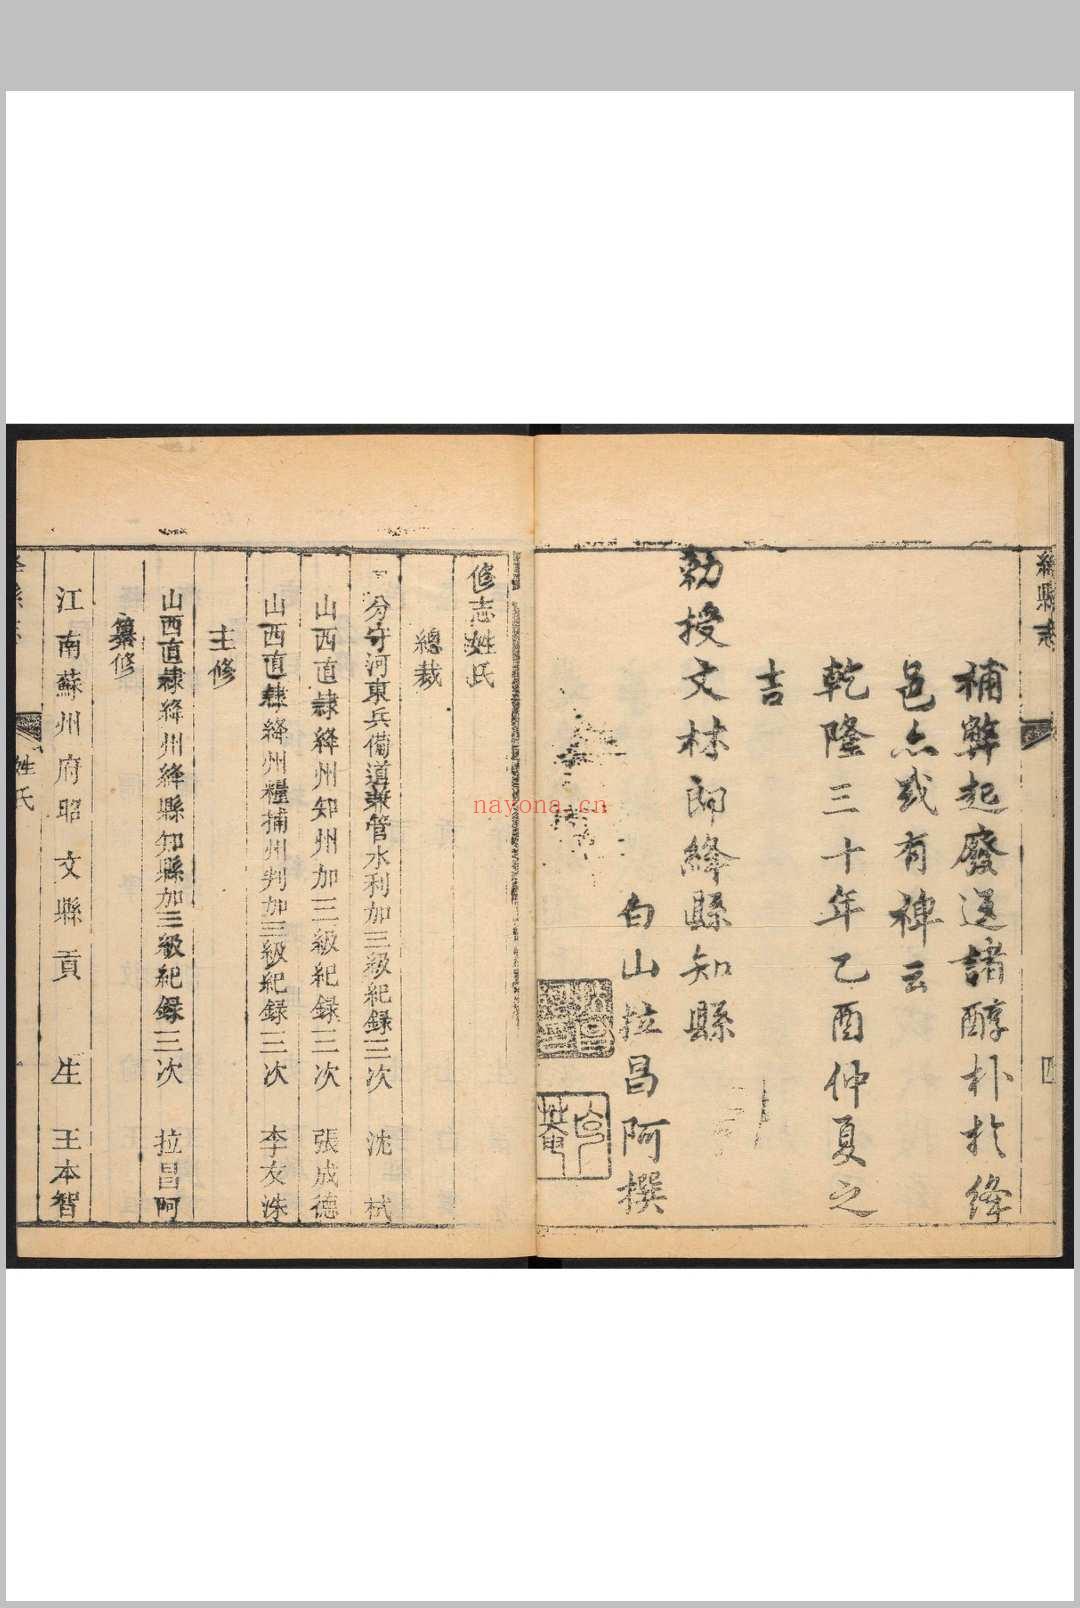 絳縣志
補弊起廢還諸醇朴於絳
邑亦或有裨云
乾隆三十年乙酉仲夏之
吉
勅授文林郎絳縣知縣
白山拉昌阿撰
修志姓氏
總裁
分守河東兵備道兼管水利加三級紀録三次 沈 栻
山西直隸絳州知州加三級紀録三次 張成德
山西直隸絳州糧捕州判加三級紀録三次 李友洙
主修
山西直隸絳州絳縣知縣加三級紀録三次 拉昌阿
纂修
江南蘇州府昭文縣貢 生 王本智
姓氏
nayona.cn